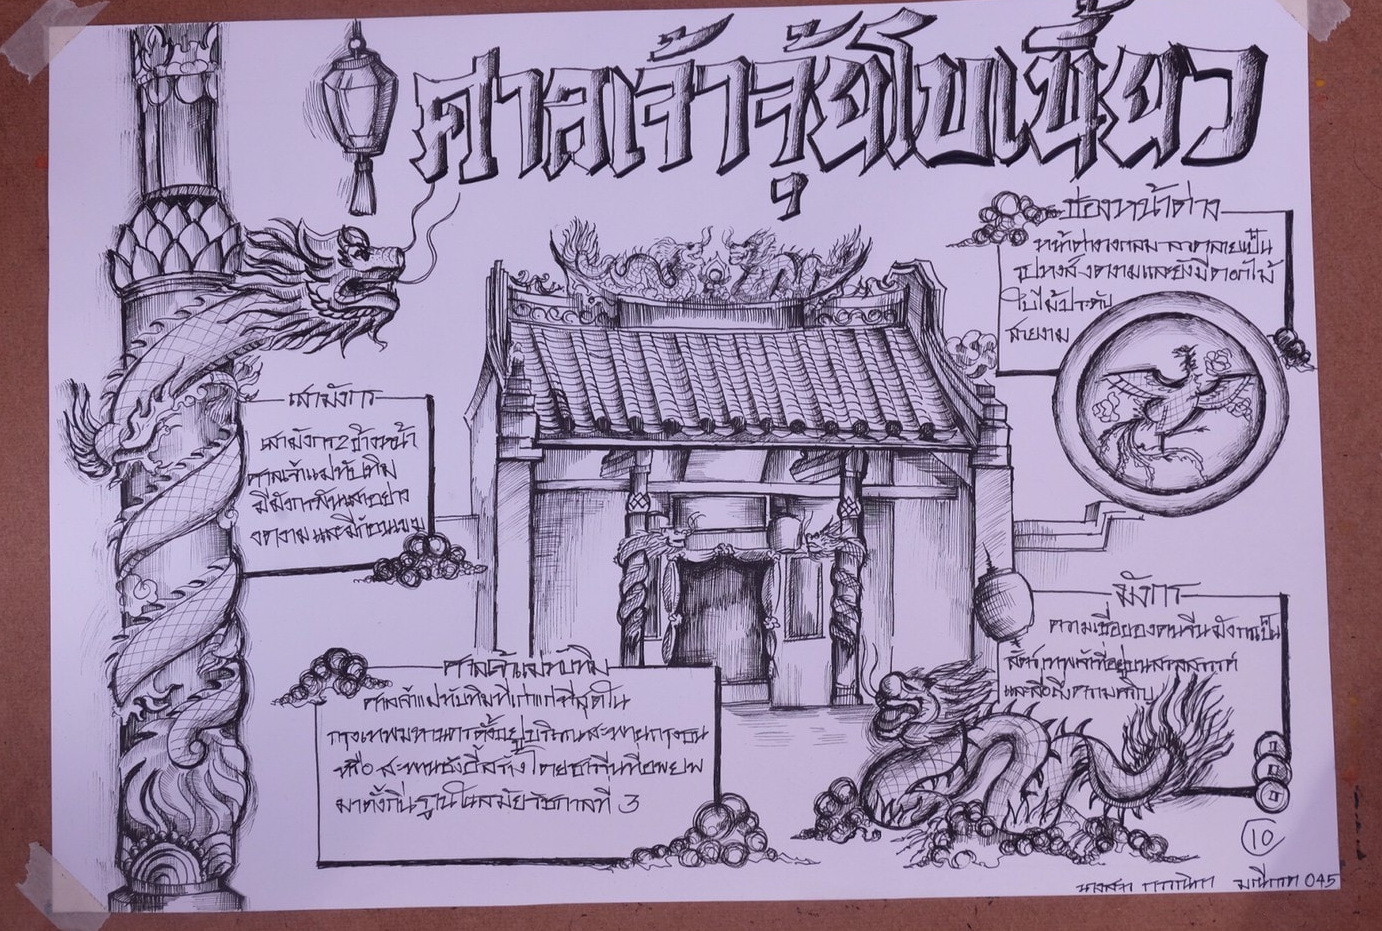 ศาลเจ้าจุ้ยโบเนี้ยว
ช่องหน้าต่าง
หน้าต่างวงกลม ลวดลายเป็น
รูปหงส์ งดงามและยังมีดอกไม้
ใบไม้ประดับ
สวยงาม
เสามังกร
เสามังกร 2 ข้างหน้า
ศาลเจ้าแม่ทับทิม
มีมังกรพันเสาอย่าง
งดงามและมีก้อนเมฆ
มังกร
ความเชื่อของคนจีน มังกรเป็น
สัตว์เทพเจ้าที่อยู่บนสวรรค์
และสื่อถึง
ศาลเจ้าแม่ทับทิม
ศาลเจ้าแม่ทับทิมที่เก่าแก่ที่สุดใน
กรุงเทพมหานครตั้งอยู่บริเวณสะพานกรุงธน
หรือสะพานซังฮี้สร้างโดยชาวจีนที่อพยพ
มาตั้งถิ่นฐานในสมัยรัชกาลที่ 3
10
นางสาว 045